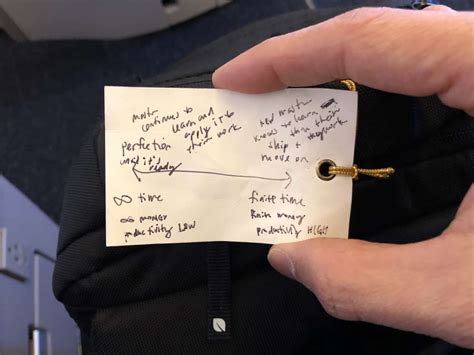 continues to
learn and
apply it to
their work
perfection
until it's
ready
∞ time
∞ money
productivity LOW
know to learn
then their
ship +
move on
finite time
finite money
productivity HIGH